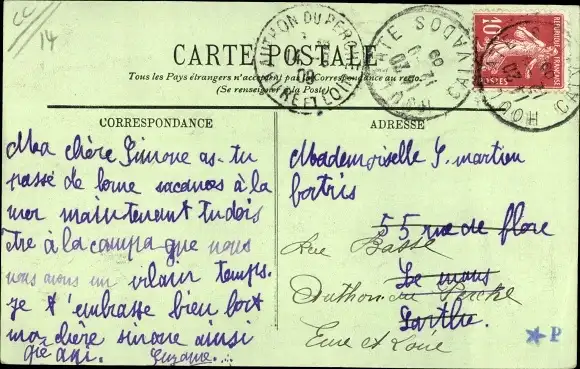 CC
14
CARTE POSTALE
Tous les Pays étrangers n'acceptent pas la Correspondance au recto
(Se renseigner à la Poste)
AUTHON DU PERCHE
EURE ET LOIR
CALVADOS
HOULGATE
10
POSTES
REPUBLIQUE FRANÇAISE
CORRESPONDANCE
ADRESSE
Ma chère Simone as-tu
passé de bone vacances à la
mer maintenant tu dois
être à la campagne que nous
nous avons un vilain temps.
je t'embrasse bien fort
ma chère simone ainsi
Suzanne
Mademoiselle S. martien
55 rue de flore
Le mans
Sarthe.
Rue Basse
Authon du Perche
Eure et Loir
P